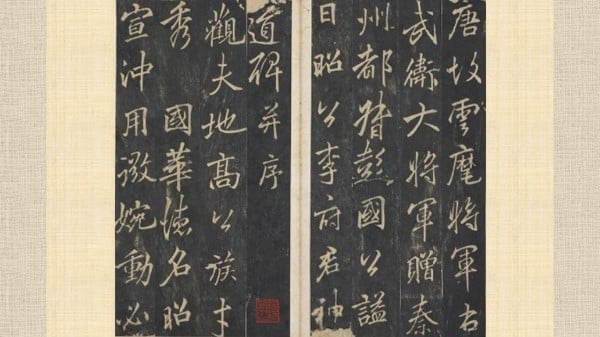 唐故雲麾將軍右
武衛大將軍贈秦
州都督彭國公謚
曰昭公李府君神
道碑并序
觀夫地高公族才
秀 國華德名昭
宣沖用微婉動必